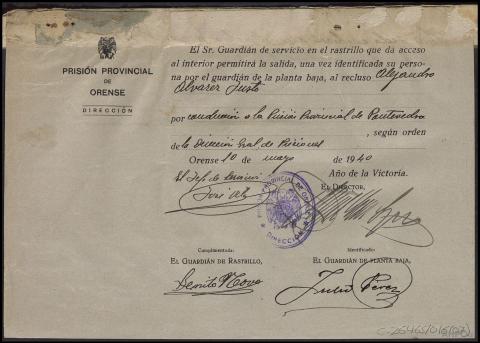 PRISIÓN PROVINCIAL
DE
ORENSE
DIRECCIÓN
El Sr. Guardián de servicio en el rastrillo que da acceso
al interior permitirá la salida, una vez identificada su perso-
na por el guardián de la planta baja, al recluso Alejandro
Alvarez Justo
por conducción a la Prisión Provincial de Pontevedra
, según orden
de la Dirección Gral de Prisiones
Orense 10 de mayo de 1940
Año de la Victoria.
El Jefe de Servicios
EL DIRECTOR,
José
PRISIÓN PROVINCIAL DE ORENSE
DIRECCIÓN
Cumplimentada:
EL GUARDIÁN DE RASTRILLO,
Benito Novo
Identificado:
EL GUARDIÁN DE PLANTA BAJA,
Julio Pérez